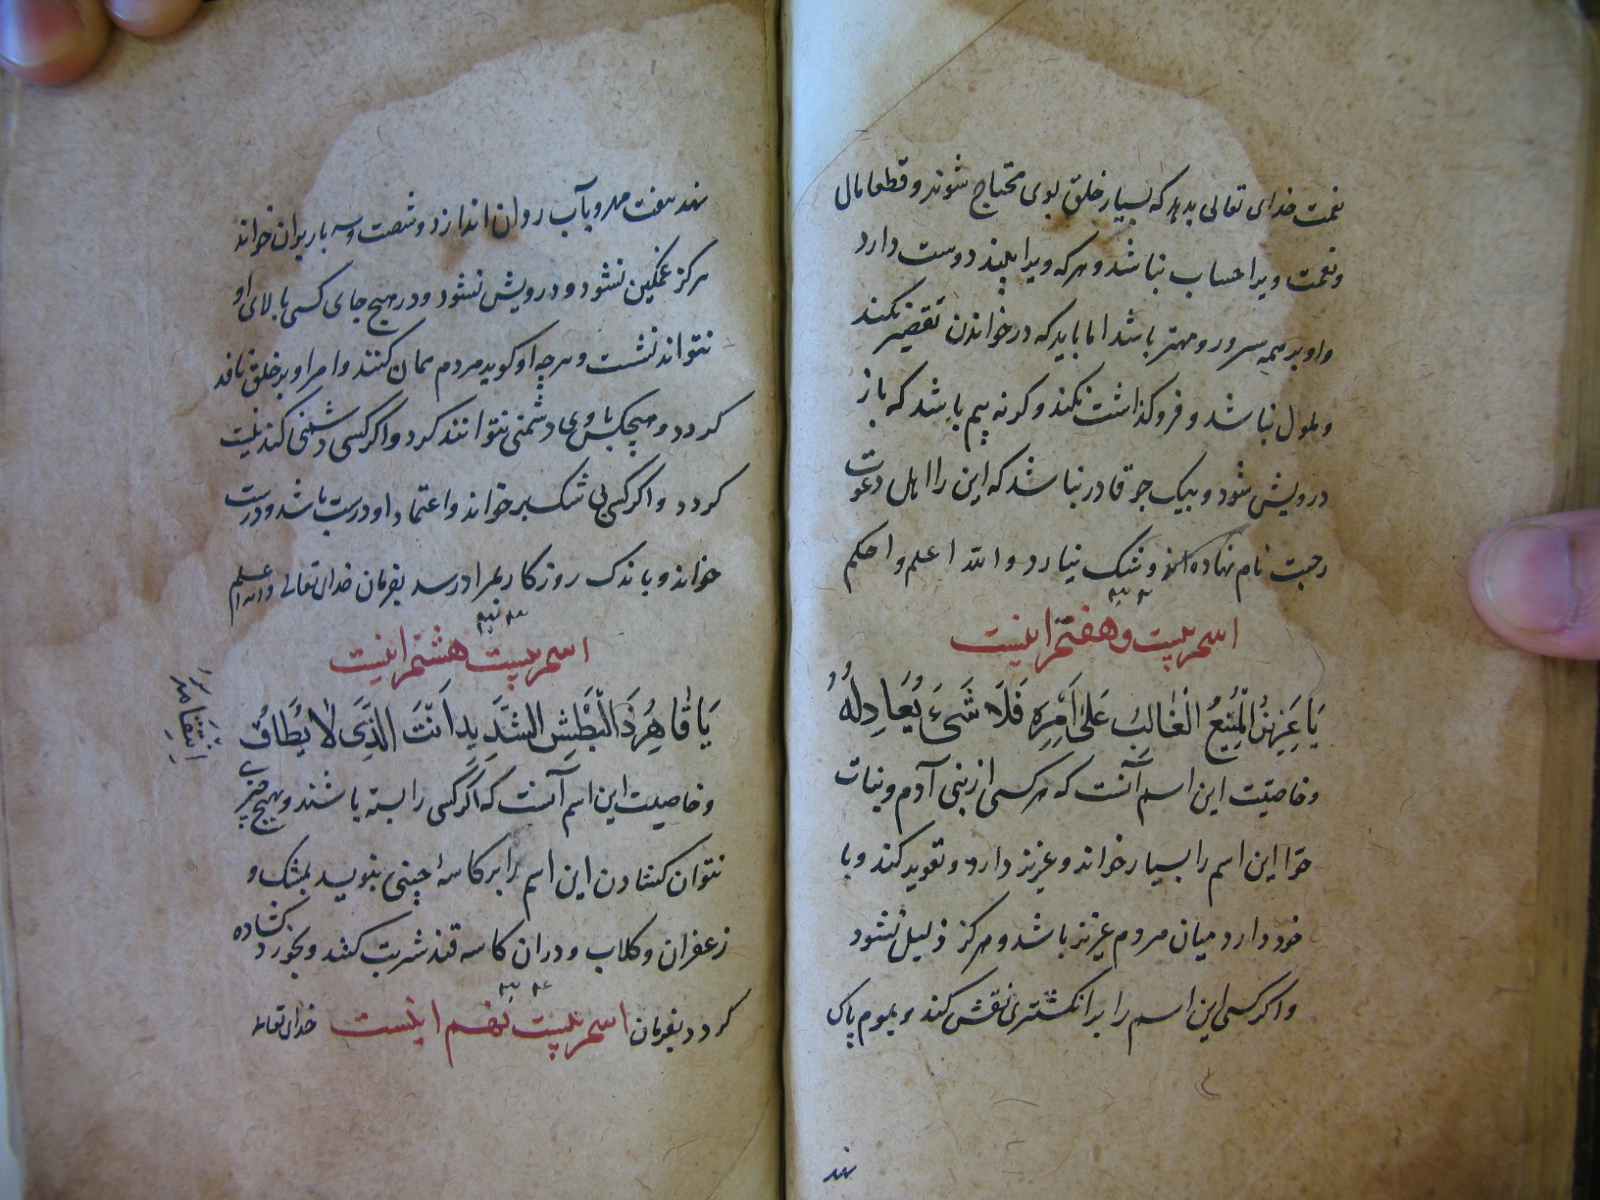 نعمت خدای تعالی بدهد که بسیار خلق بوی محتاج شوند و قطعا مال
و نعمت ویرا حساب نباشد و هر که ویرا بیند دوست دارد
و او بر همه سرور و مهتر باشد اما باید که در خواندن تقصیر نکند
و ملول نباشد و فرو گذاشت نکند و کرنه بیم باشد که باز
درویش شود و بیک جو قادر نباشد که این را اهل دعوت
رجبت نام نهاده اند و شک نیارد و الله اعلم و احکم
اسم بیست و هفتم اینست
یَا عَزِیزُ الْمَنِیعُ الْغَالِبُ عَلَی اَمْرِهِ فَلَا شَیْءَ یُعَادِلُهُ
و خاصیّت این اسم آنست که هر کسی از بنی آدم و بنات
حوّا این اسم را بسیار خواند و عزیز دارد و تعوید کند و با
خود دارد میان مردم عزیز باشد و هرکز ذلیل نشود
و اکر کسی این اسم را بر انکشتری نقش کند و بموم پاک
نهد
نهد هفت مهر و بآب روان اندازد و شصت و سه بار بران خواند
هرکز غمکین نشود و درویش نشود و در هیچ جای کسی بالای او
نتواند نشست و هرچه او کوید مردم همان کنند و امر او بر خلق نافد
کردد و هیچکس با وی دشمنی نتوانند کرد و اکر کسی دشمنی کند نیست
کردد و اکر کسی بی شک بر خواند و اعتماد او درست باشد و درست
خواند و باندک روزکار بمراد رسد بفرمان خدای تعالی والله اعلم
اسم بیست هشتم اینست
یَا قَاهِرُ ذَا الْبَطْشِ الشَّدِیدِ اَنْتَ الَّذِی لَا یُطَاقُ
اِنْتِقَامُهُ
و خاصیت این اسم آنست که اگر کسی را بسته باشند و بهیچ چیزی
نتوان کشادن این اسم را بر کاسهٔ چینی بنویسد بمشک و
زعفران و کلاب و دران کاسه قند شربت کند و بخورد کشاده
کردد بفرمان خدای تعالی اسم بیست نهم اینست